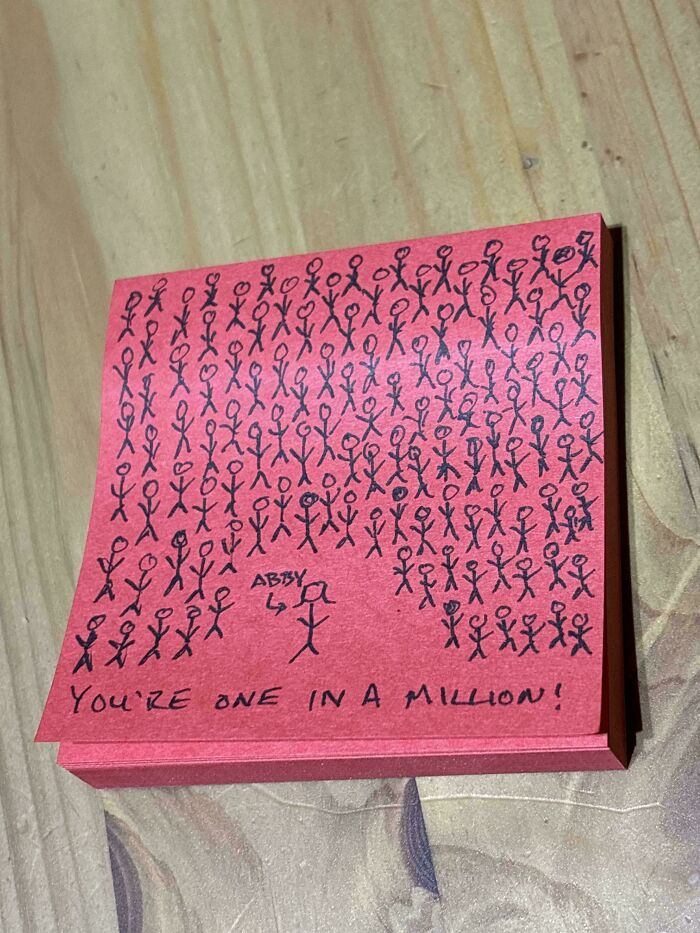 ABBY
YOU'RE ONE IN A MILLION!